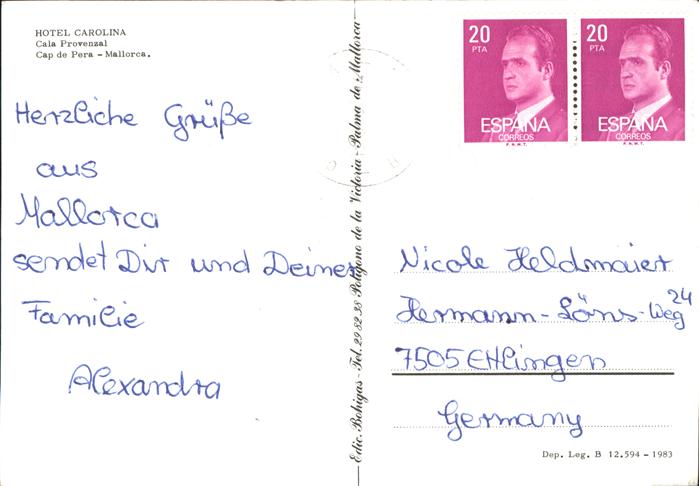 HOTEL CAROLINA
Cala Provenzal
Cap de Pera - Mallorca.
Herzliche Grüße
aus
Mallorca
sendet Dir und Deiner
Familie
Alexandra
Edic. Bohigas - Tel. 29 82 38 Polígono de la Victoria - Palma de Mallorca
20
PTA
ESPAÑA
CORREOS
F.N.M.T.
20
PTA
ESPAÑA
CORREOS
F.N.M.T.
Nicole Heldmaier
Hermann-Löns-Weg 24
7505 Ettlingen
Germany
Dep. Leg. B 12.594 - 1983